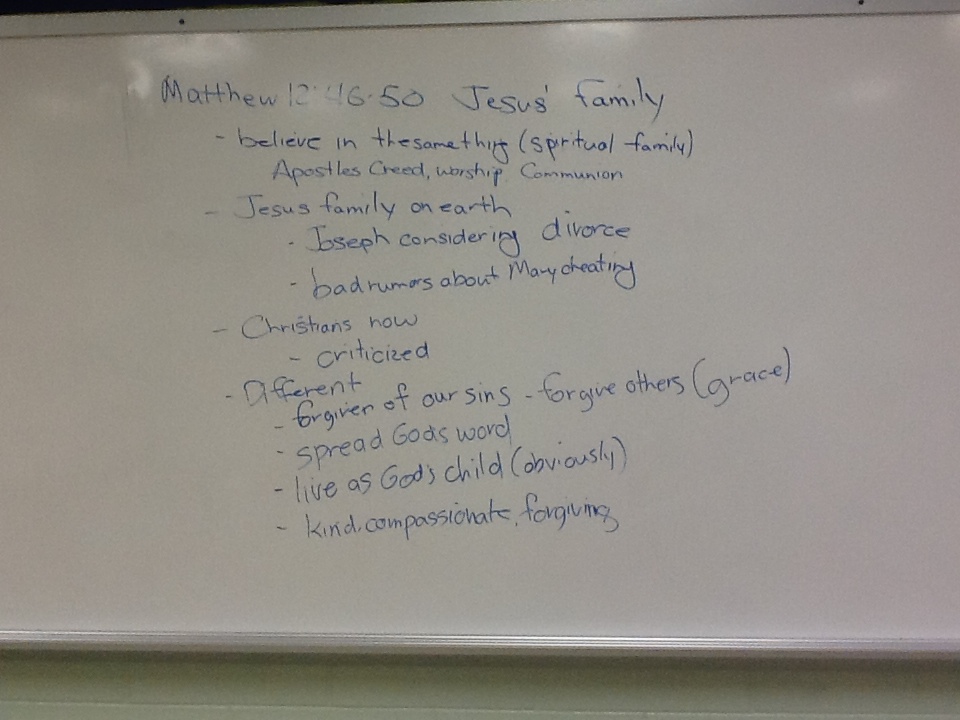 Matthew 12:46-50 Jesus' family
- believe in the same thing (spiritual family)
Apostles Creed, worship Communion
- Jesus family on earth
- Joseph considering divorce
- bad rumors about Mary cheating
- Christians now
- criticized
- Different
- forgiven of our sins - forgive others (grace)
- spread God's word
- live as God's child (obviously)
- kind, compassionate, forgiving